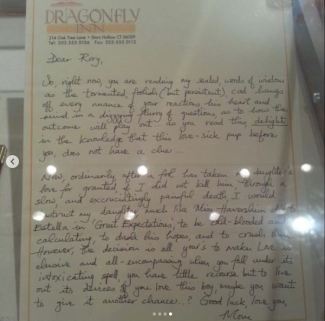 DRAGONFLY
INN
Dear Rory,
So, right now, you are reading my sealed words of wisdom
as the tormented, foolish (but persistent) cad hangs
off every nuance of your reactions his heart and
mind in a dizzying flurry of questions as to how the
outcome will play out. As you read this, delight
in the knowledge that this love-sick pup before
you, does not have a clue...
Now, ordinarily after a fool has taken my daughter's
love for granted if I did not kill him through a
slow and excruciatingly painful death I would
instruct my daughter much like Miss Haversham
Estella in 'Great Expectations', to be cold-blooded and
calculating to dash his hopes, and to crush
However, the decision is all your's to make Love is
elusive and all-encompassing when you fall under its
intoxicating spell, you have little recourse but to live
out its decrees if you love this boy maybe you want
to give it another chance..? Good luck, love you,
Mom